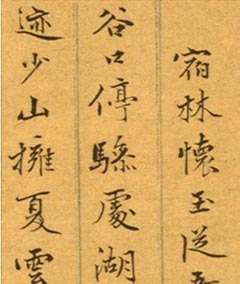 宿林懷玉從
谷口停驂處湖
迹少山擁夏雲